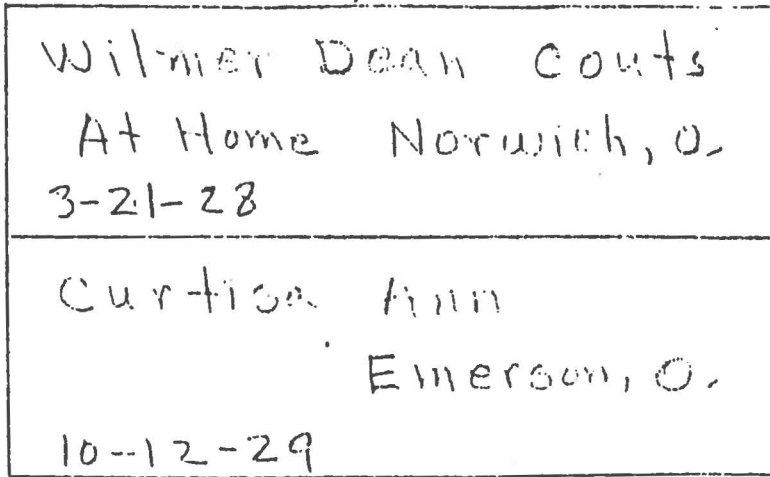 Wilmer Dean Couts
At Home Norwich, O.
3-21-28
Curtisa Ann
Emerson, O.
10-12-29